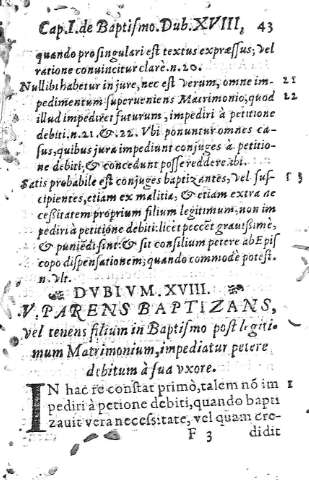 Cap. I. de Baptiſmo. Dub. XVIII, 43
quando pro singulari eſt textus expræſſus, vel
ratione convincitur clarè. n. 20.
Nullibi habetur in jure, nec eſt verum, omne im- 21
pedimentum superveniens Matrimonio, quod 22
illud impediret futurum, impediri à petitione
debiti. n. 21. & 22. Vbi ponuntur omnes ca-
sus, quibus jura impediunt conjuges à petitio-
ne debiti, & concedunt posse reddere ibi.
Satis probabile eſt conjuges baptizantes, vel ſuſ-
cipientes, etiam ex malitia, & etiam extra ne
ceſſitatem proprium filium legitimum, non im
pediri à petitione debiti: licet peccēt graviſſimè,
& puniēdi ſint: & ſit conſilium petere ab Epiſ
copo diſpensationem, quando commodè poteſt.
n. vlt.
DVBIVM. XVIII.
V. PARENS BAPTIZANS,
vel tenens filium in Baptiſmo poſt legiti
mum Matrimonium, impediatur petere
debitum à ſua vxore.
IN hac re conſtat primò, talem nō im 1
pediri à petione debiti, quando bapti
zavit vera neceſsitate, vel quam cre-
F 3 didit